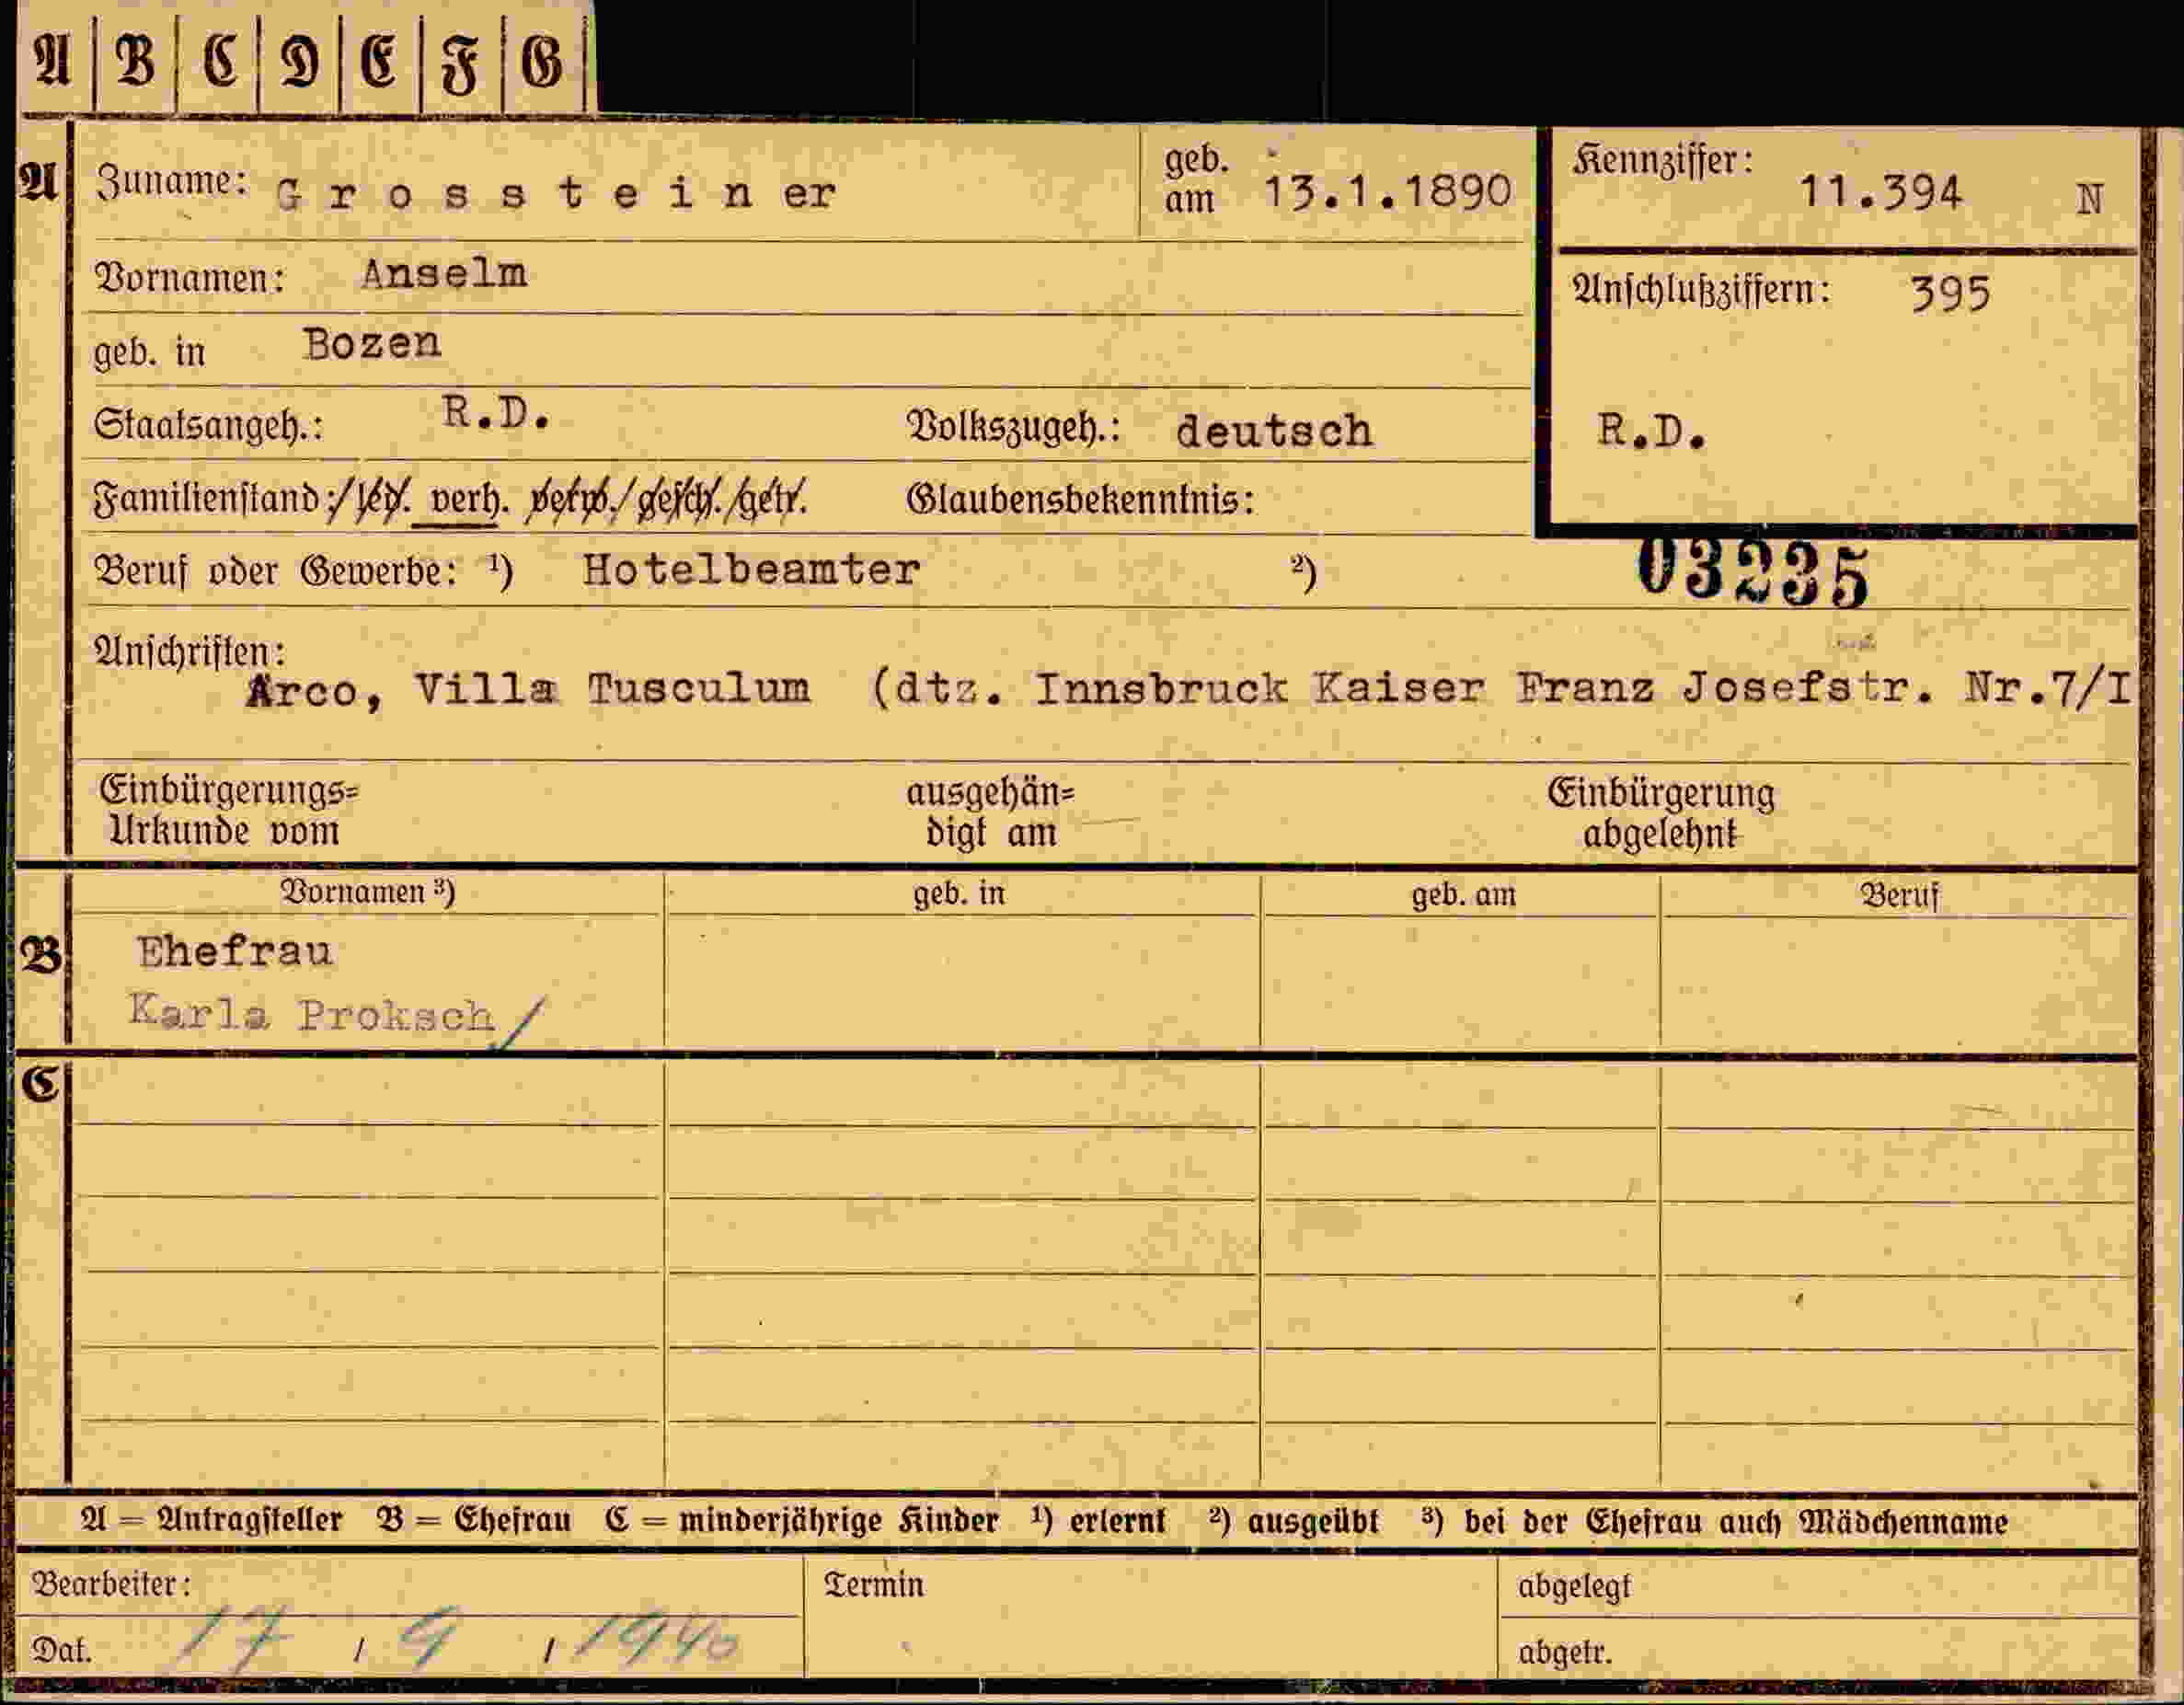 A B C D E F G
A Zuname: Grossteiner geb. am 13.1.1890 Kennziffer: 11.394 N
Vornamen: Anselm Anschlußziffern: 395
geb. in Bozen
Staatsangeh.: R.D. Volkszugeh.: deutsch R.D.
Familienstand: led. verh. verw. gesch. getr. Glaubensbekenntnis:
Beruf oder Gewerbe: ¹) Hotelbeamter ²) 03235
Anschriften:
Arco, Villa Tusculum (dtz. Innsbruck Kaiser Franz Josefstr. Nr.7/I
Einbürgerungs= ausgehän= Einbürgerung
Urkunde vom digt am abgelehnt
Vornamen ³) geb. in geb. am Beruf
B Ehefrau
Karla Proksch
C
A = Antragsteller B = Ehefrau C = minderjährige Kinder ¹) erlernt ²) ausgeübt ³) bei der Ehefrau auch Mädchenname
Bearbeiter: Termin abgelegt
Dat. 17 / 9 / 1940 abgetr.